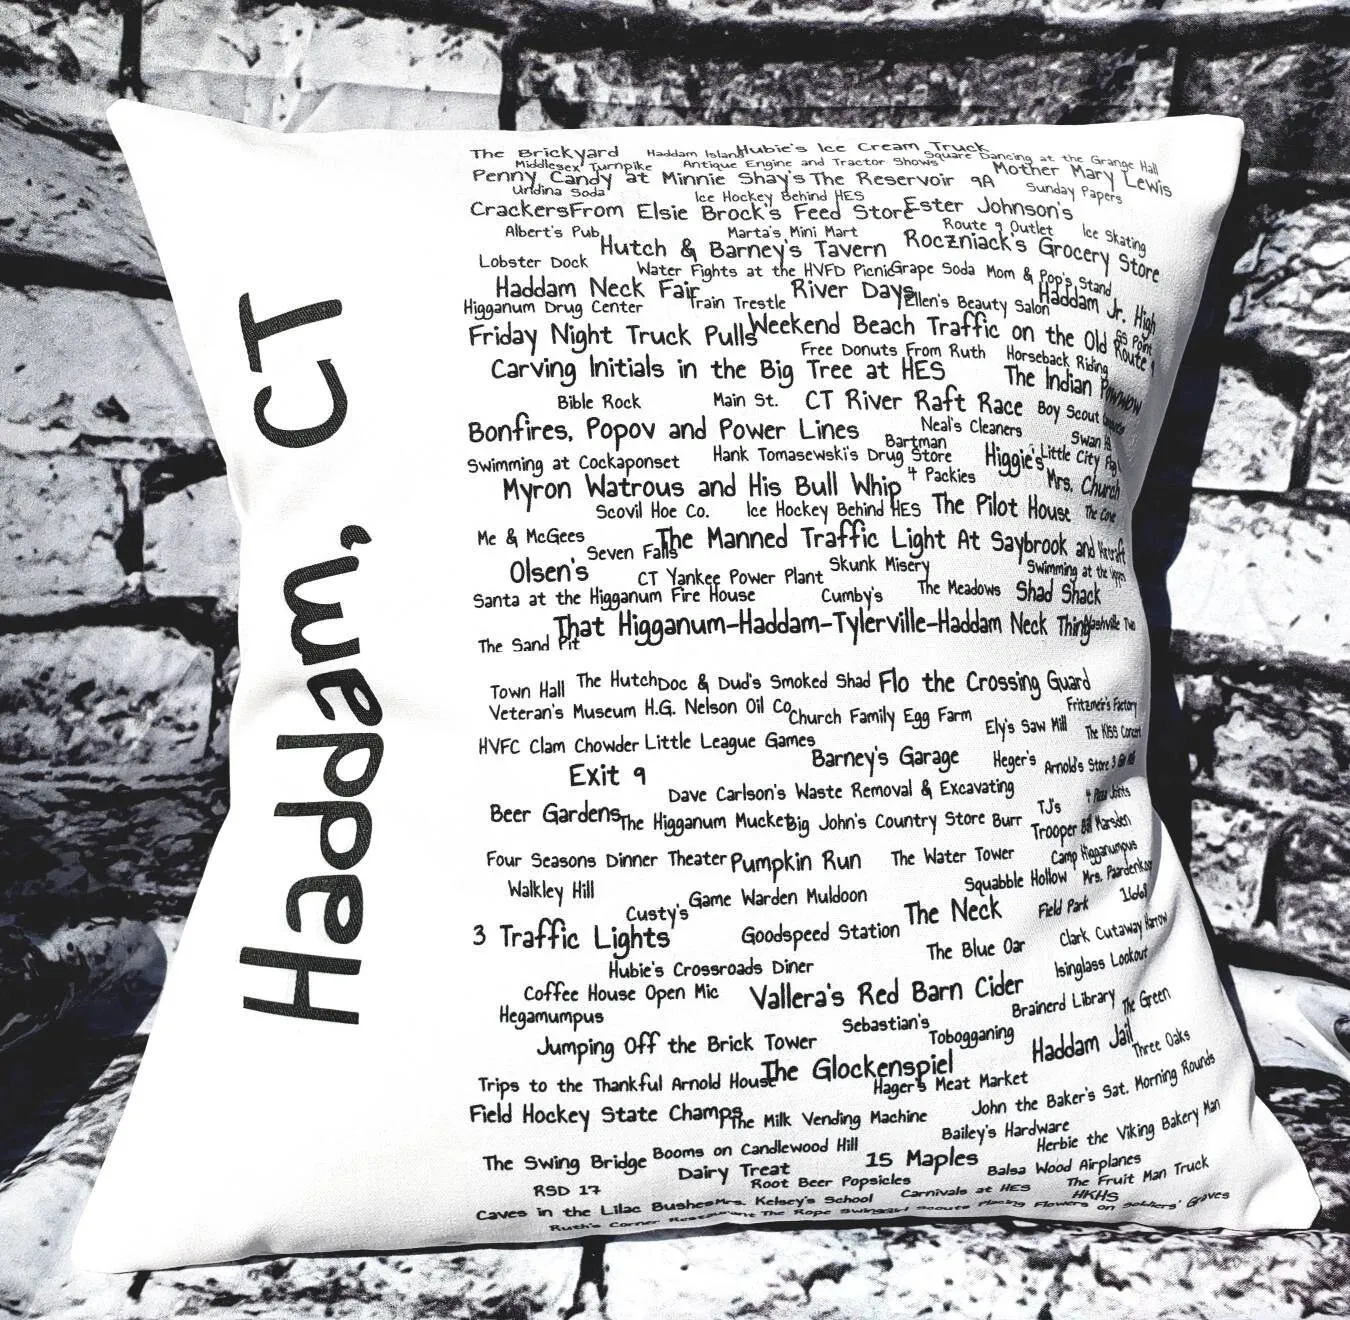 Haddam, CT
The Brickyard Haddam Island Hubie's Ice Cream Truck
Middlesex Turnpike Antique Engine and Tractor Shows Square Dancing at the Grange Hall
Penny Candy at Minnie Shay's The Reservoir 9A Mother Mary Lewis
Undina Soda Ice Hockey Behind HES Sunday Papers
Crackers From Elsie Brock's Feed Store Ester Johnson's
Albert's Pub Marta's Mini Mart Route 9 Outlet Ice Skating
Hutch & Barney's Tavern Roczniack's Grocery Store
Lobster Dock Water Fights at the HVFD Picnic Grape Soda Mom & Pop's Stand
Haddam Neck Fair Train Trestle River Days Ellen's Beauty Salon Haddam Jr. High
Higganum Drug Center
Friday Night Truck Pulls Weekend Beach Traffic on the Old Route 9 SS Point
Free Donuts From Ruth Horseback Riding
Carving Initials in the Big Tree at HES The Indian Powwow
Bible Rock Main St. CT River Raft Race Boy Scout
Bonfires, Popov and Power Lines Neal's Cleaners Swan
Bartman
Swimming at Cockaponset Hank Tomasewski's Drug Store Higgie's Little City
Myron Watrous and His Bull Whip 4 Packies Mrs. Church
Scovil Hoe Co. Ice Hockey Behind HES The Pilot House The Cove
Me & McGees Seven Falls The Manned Traffic Light At Saybrook and
Olsen's CT Yankee Power Plant Skunk Misery Swimming at the
Santa at the Higganum Fire House Cumby's The Meadows Shad Shack
That Higganum-Haddam-Tylerville-Haddam Neck Thing
The Sand Pit
Town Hall The Hutch Doc & Dud's Smoked Shad Flo the Crossing Guard
Veteran's Museum H.G. Nelson Oil Co. Church Family Egg Farm Ely's Saw Mill Fritzmeir's Factory
HVFC Clam Chowder Little League Games The KISS Concert
Exit 9 Barney's Garage Heger's Arnold's Store
Dave Carlson's Waste Removal & Excavating
Beer Gardens The Higganum Mucket Big John's Country Store Burr TJ's 4 Pizza Joints
Trooper Bill Marsden
Four Seasons Dinner Theater Pumpkin Run The Water Tower Camp Higganumpus
Walkley Hill Game Warden Muldoon Squabble Hollow Mrs.
Custy's The Neck Field Park 1668
3 Traffic Lights Goodspeed Station The Blue Oar Clark Cutaway Harrow
Hubie's Crossroads Diner Isinglass Lookout
Coffee House Open Mic Vallera's Red Barn Cider Brainerd Library The Green
Hegamumpus Sebastian's Tobogganing
Jumping Off the Brick Tower Haddam Jail Three Oaks
Trips to the Thankful Arnold House The Glockenspiel
Hager's Meat Market
Field Hockey State Champs The Milk Vending Machine John the Baker's Sat. Morning Rounds
Bailey's Hardware Herbie the Viking Bakery Man
The Swing Bridge Booms on Candlewood Hill 15 Maples Balsa Wood Airplanes
RSD 17 Dairy Treat Root Beer Popsicles The Fruit Man Truck
Caves in the Lilac Bushes Mrs. Kelsey's School Carnivals at HES HKHS
Ruth's Corner Restaurant The Rope Swing Girl Scouts Placing Flowers on Soldiers' Graves